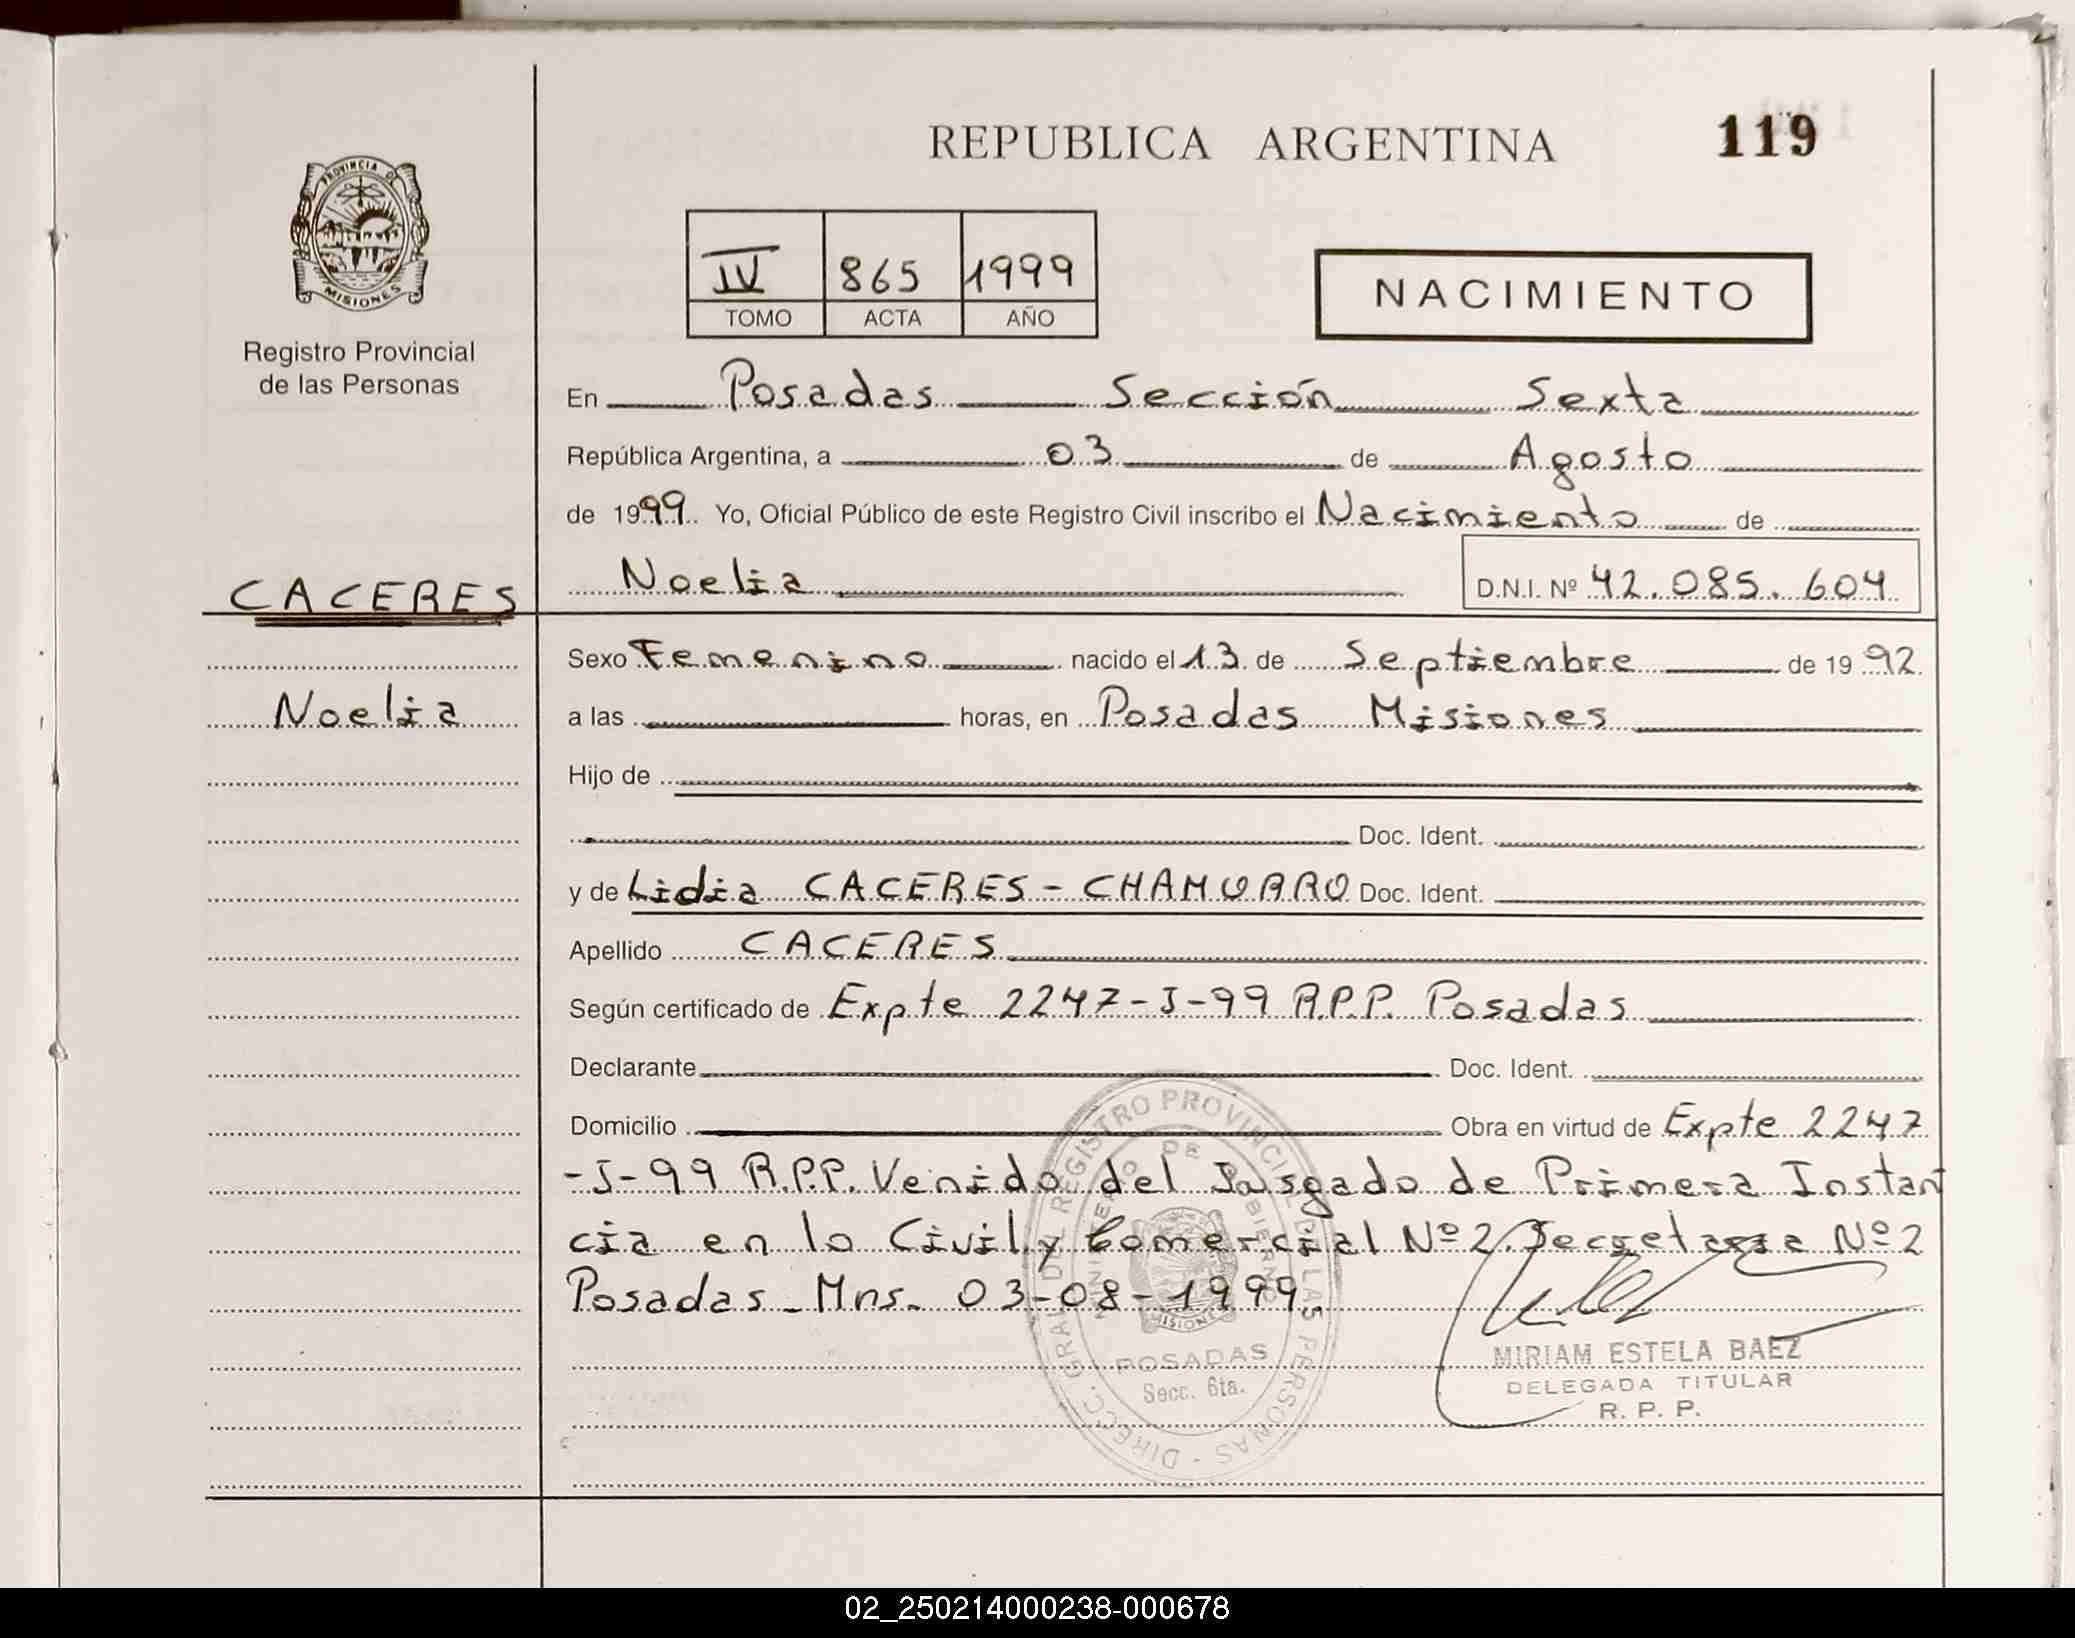 REPUBLICA ARGENTINA
119
PROVINCIA DE
MISIONES
Registro Provincial
de las Personas
IV 865 1999
TOMO ACTA AÑO
NACIMIENTO
En Posadas Sección Sexta
República Argentina, a 03 de Agosto
de 1999 Yo, Oficial Público de este Registro Civil inscribo el Nacimiento de
Noelia D.N.I. Nº 42.085.604
CACERES
Noelia
Sexo Femenino nacido el 13 de Septiembre de 19 92
a las horas, en Posadas Misiones
Hijo de
Doc. Ident.
y de Lidia CACERES - CHAMORRO Doc. Ident.
Apellido CACERES
Según certificado de Expte 2247-J-99 R.P.P. Posadas
Declarante Doc. Ident.
Domicilio Obra en virtud de Expte 2247
-J-99 R.P.P. Venido del Jusgado de Primera Instan
cia en lo Civil y Comercial Nº 2. Secretaria Nº 2
Posadas - Mns. 03-08-1999.
DIRECC. GRAL DEL REGISTRO PROVINCIAL DE LAS PERSONAS
MINISTERIO DE GOBIERNO
MISIONES
POSADAS
Secc. 6ta.
MIRIAM ESTELA BAEZ
DELEGADA TITULAR
R. P. P.
02_250214000238-000678